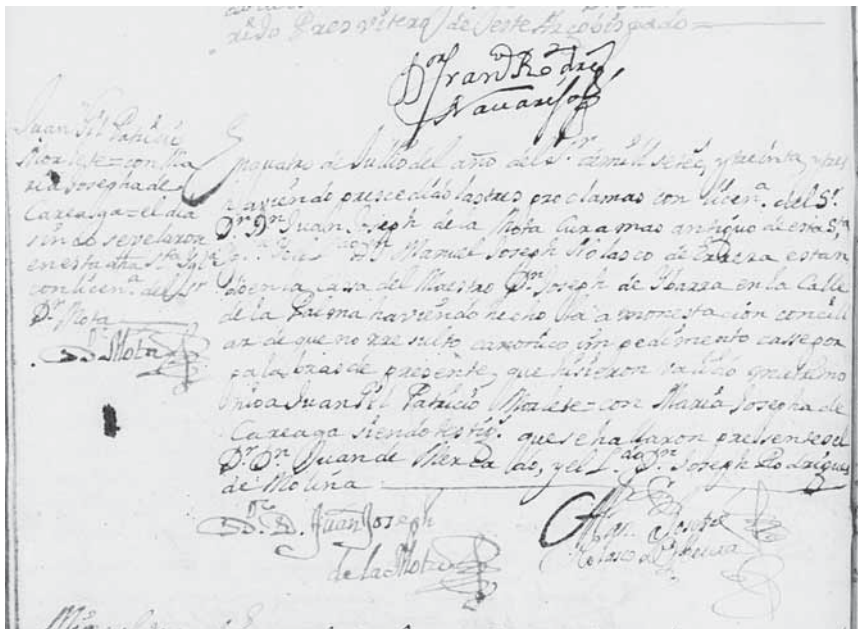 rido Presvitero de este Arzobispado
Dor Franco Rodrí
Navarijo
Juan Gil Patricio
Morlete=con Ma
ria Josepha de
Careaga=el dia
sinco se velaron
en esta dha Sta Igla
con licena del Sr
Dr Mota
Dr Mota
En quatro de Jullio del año del Sr de mill setecs y treinta y tres
haviendo prescedido las tres proclamas con licena del Sr
Dr Dn Juan Joseph de la Mota Cura mas antiguo de esta Sta
Yo el Ldo Dn Manuel Joseph Nolasco de Errera estan
do en la Casa del Maestro Dn Joseph de Ybarra en la Calle
de la Palma haviendo hecho la amonestacion concili
ar de que no rresulto canonico ympedimento casse por
palabras de presente, que hisieron valido matrimo
nio a Juan Gil Patricio Morlete=con Maria Josepha de
Careaga siendo testigs que se hallaron pressentes el
Dr Dn Juan de Merca do, y el Ldo Dn Joseph Rodrigues
de Molina
Dr D. Juan Joseph
de la Mota
Man Joseph
Nolasco de Herrera